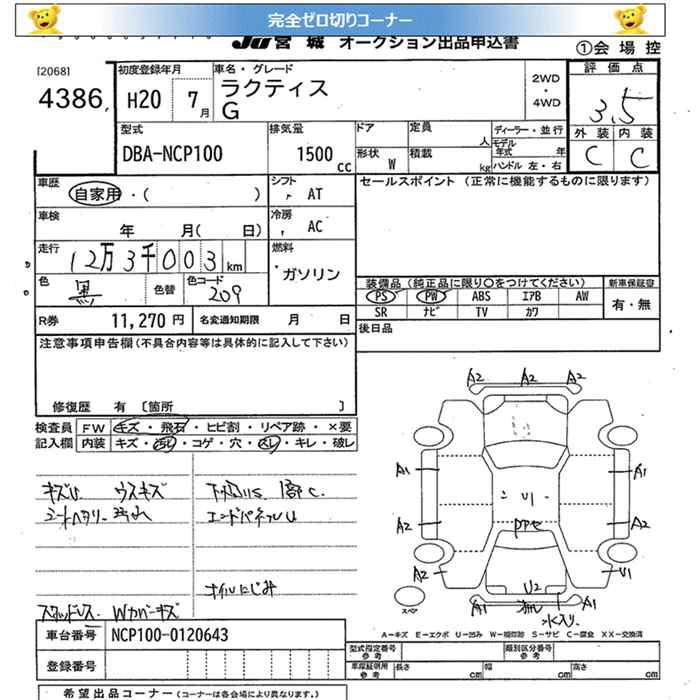 完全ゼロ切りコーナー
JU宮城 オークション出品申込書
①会場控
[2068]
4386
初度登録年月
H20 7月
車名・グレード
ラクティス
G
2WD
・
4WD
評価点
3.5
外装 内装
C C
型式
DBA-NCP100
排気量
1500 cc
ドア
形状 W
定員 人
積載 kg
ディーラー・並行
モデル年式 年
ハンドル 左・右
車歴
自家用・( )
シフト
AT
セールスポイント (正常に機能するものに限ります)
車検
年 月( 日)
冷房
AC
走行
12万3千003km
燃料
ガソリン
色
黒
色替
色コード
209
装備品(純正品に限り〇をつけてください)
新車保証書
PS PW ABS エアB AW
SR ナビ TV カワ
有・無
R券 11,270円
名変通知期限 月 日
後日品
注意事項申告欄(不具合内容等は具体的に記入して下さい)
修復歴 有 〔箇所 〕
検査員 FW キズ・飛石・ヒビ割・リペア跡・×要
記入欄 内装 キズ・汚レ・コゲ・穴・スレ・キレ・破レ
キズU ウスキズ
下回りS 1部C
エンドパネルU
オイルにじみ
スタッドレス Wカバーキズ
A2 A2 A2
A1 A1
U1
A2 A2
A2 U2 U1
水入り
A1 A1
スペア
A―キズ E―エクボ U―凹み W―補修跡 S―サビ C―腐食 XX―交換済
車台番号 NCP100-0120643
登録番号 cm cm cm
型式指定番号 参考
類別区分番号 参考
車庫証明用 参考 長さ 幅 高さ
希望出品コーナー(コーナーは各会場により異なります。)